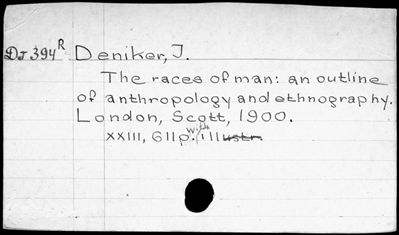 DJ 394 R Deniker, J.
The races of man: an outline
of anthropology and ethnography.
London, Scott, 1900.
xxIII, 611p. with illustr.